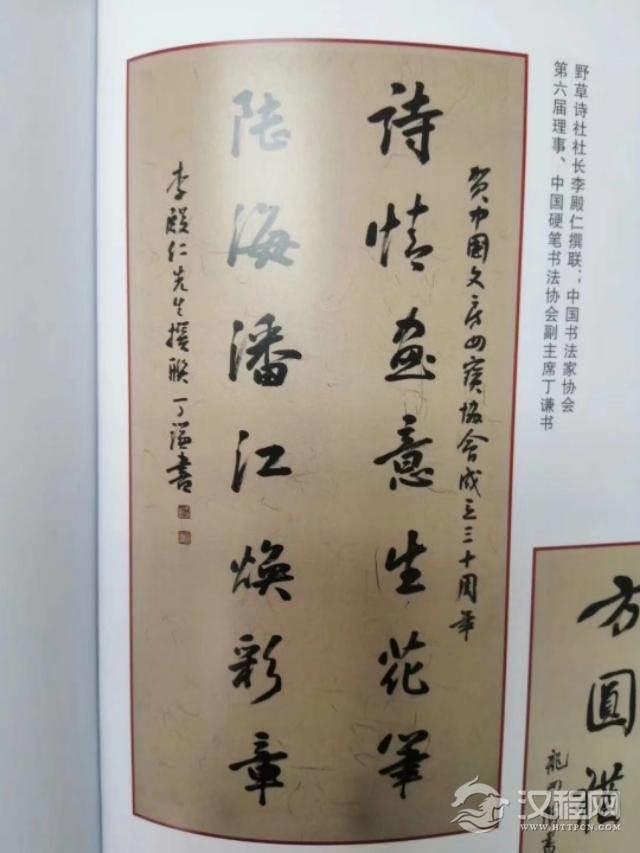 野草诗社社长李殿仁撰联；中国书法家协会
第六届理事、中国硬笔书法协会副主席丁谦书
贺中国文房四宝协会成立三十周年
诗情画意生花笔
陆海潘江焕彩章
李殿仁先生撰联丁谦书
方圆
汉程网
HTTPCN.COM